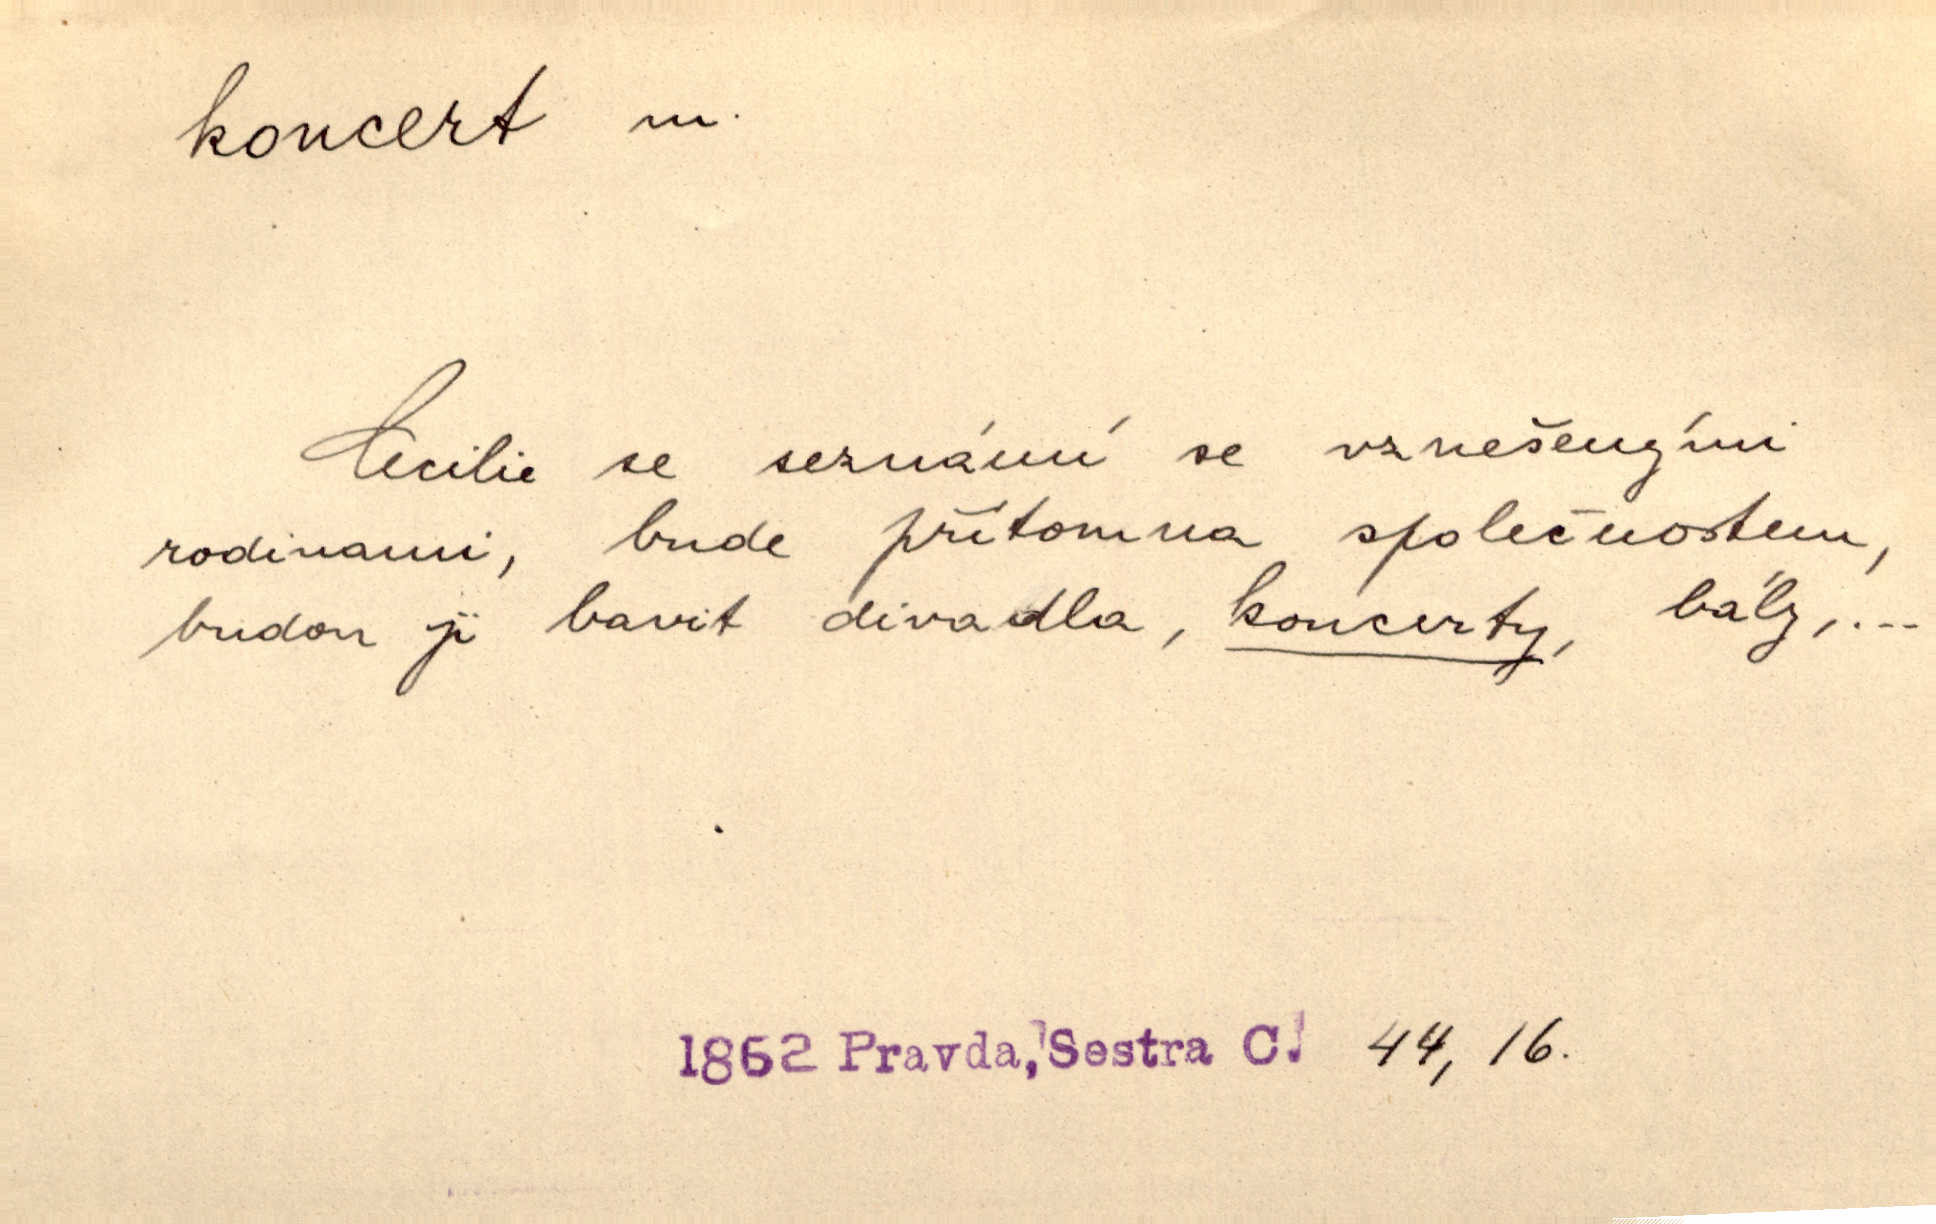 koncert m.
Cecilie se seznámí se vznešenými
rodinami, bude přítomna společnostem,
budou ji bavit divadla, koncerty, bály,...
1862 Pravda, Sestra C. 44, 16.